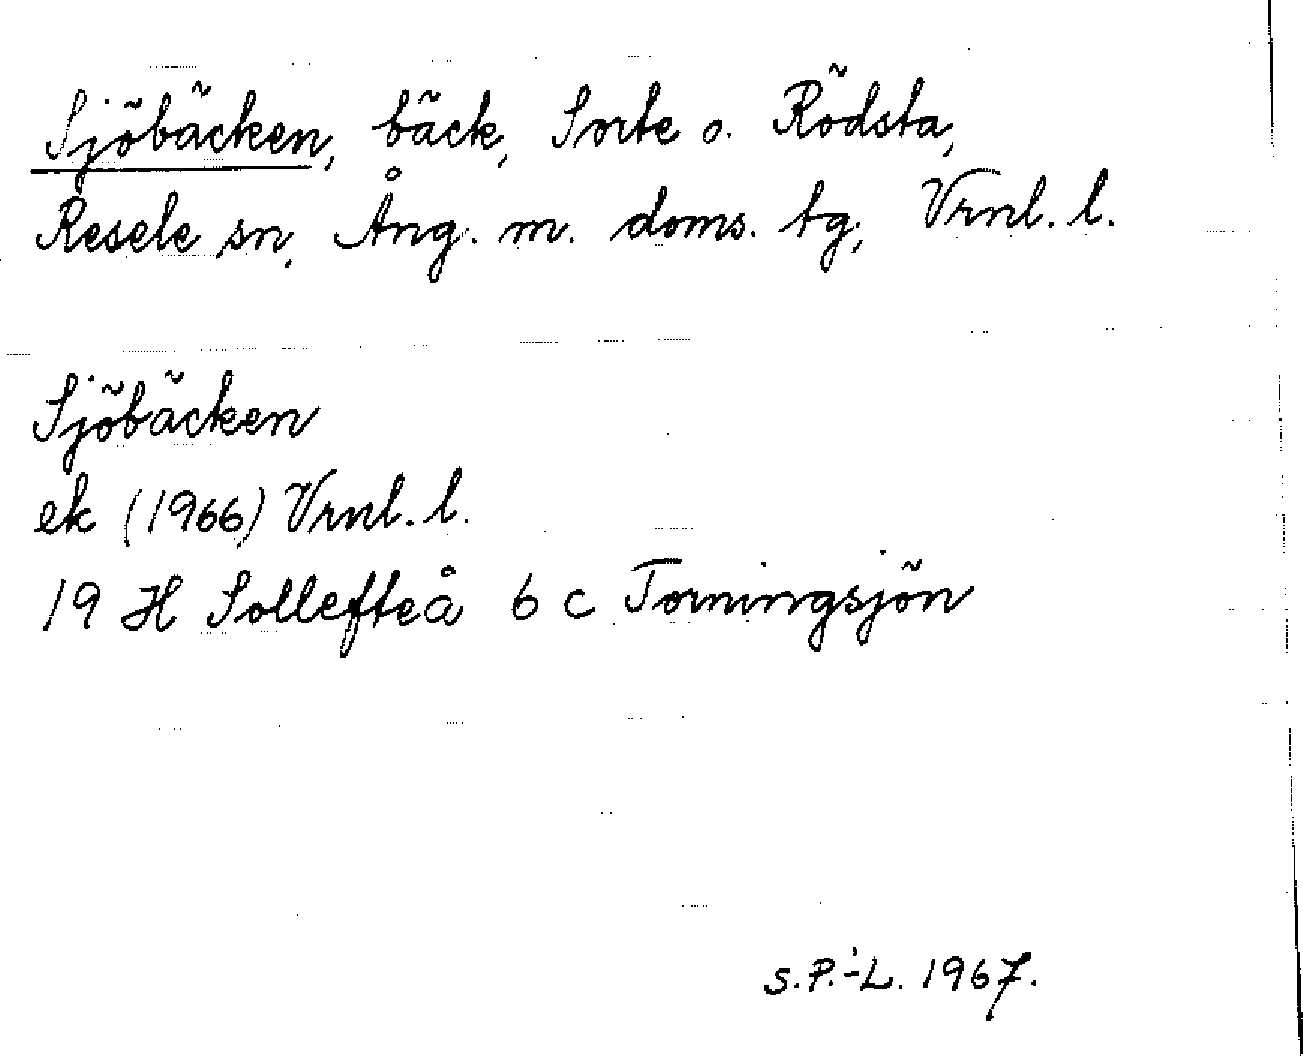 Sjöbäcken, bäck, Sorte o. Rödsta,
Resele sn, Ång. m. doms. tg, Vrnl. l.
Sjöbäcken
ek (1966) Vrnl. l.
19 H Sollefteå 6 c Torningsjön
S.P.-L. 1967.